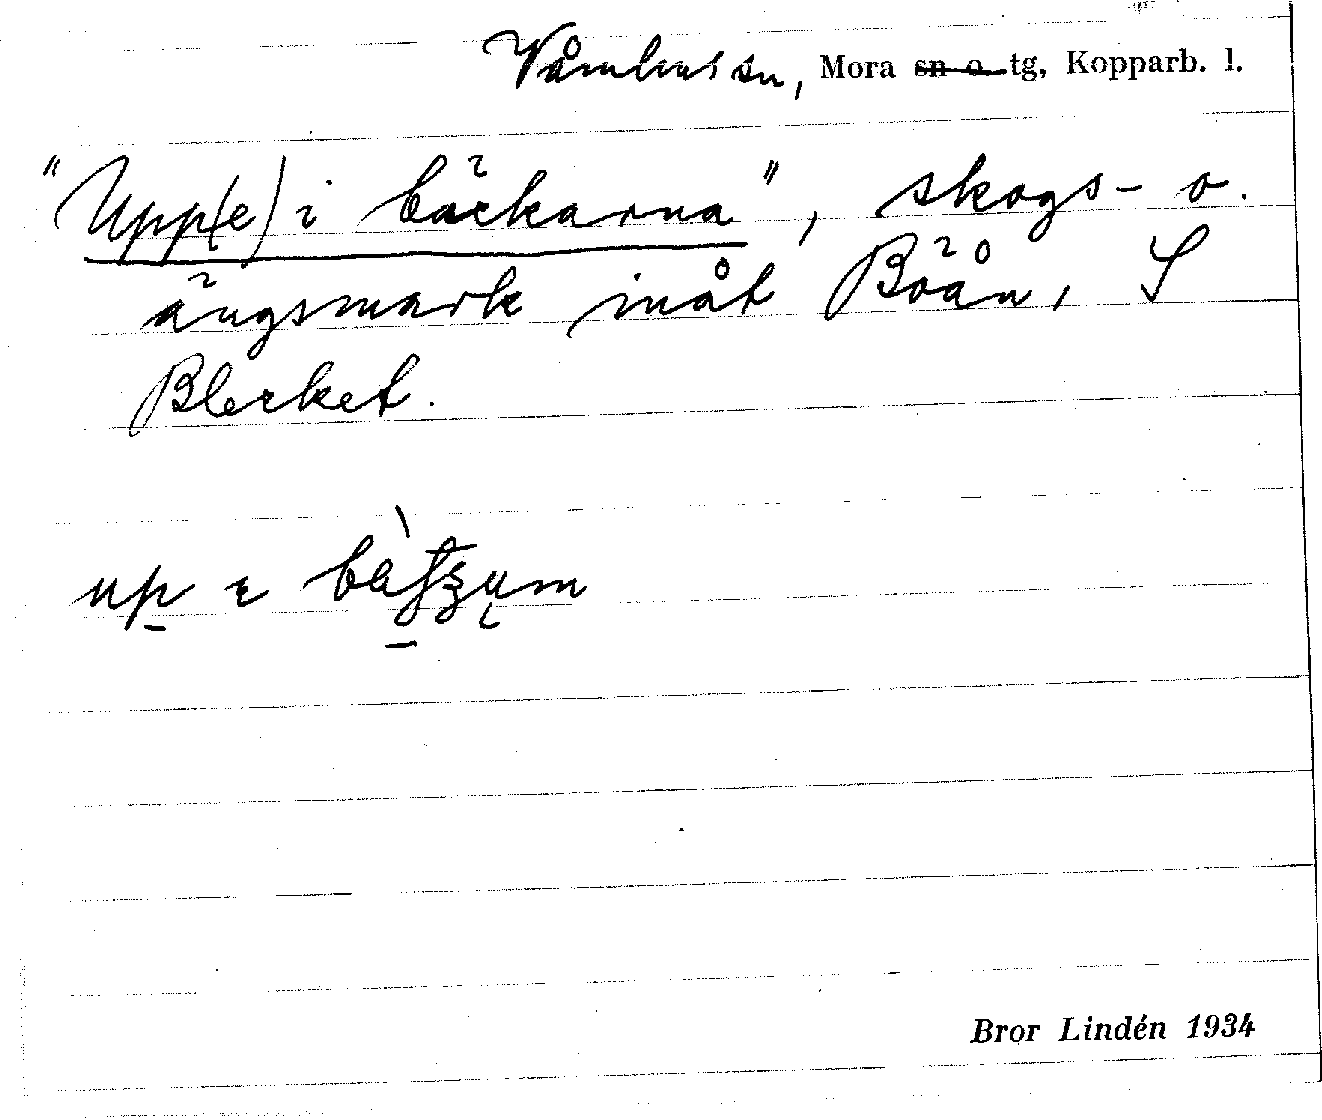 Våmhus sn, Mora sn o. tg, Kopparb. l.
"Upp(e) i bäckarna", skogs- o.
ängsmark inåt Böån, S
Blecket.
up ɪ
Bror Lindén 1934